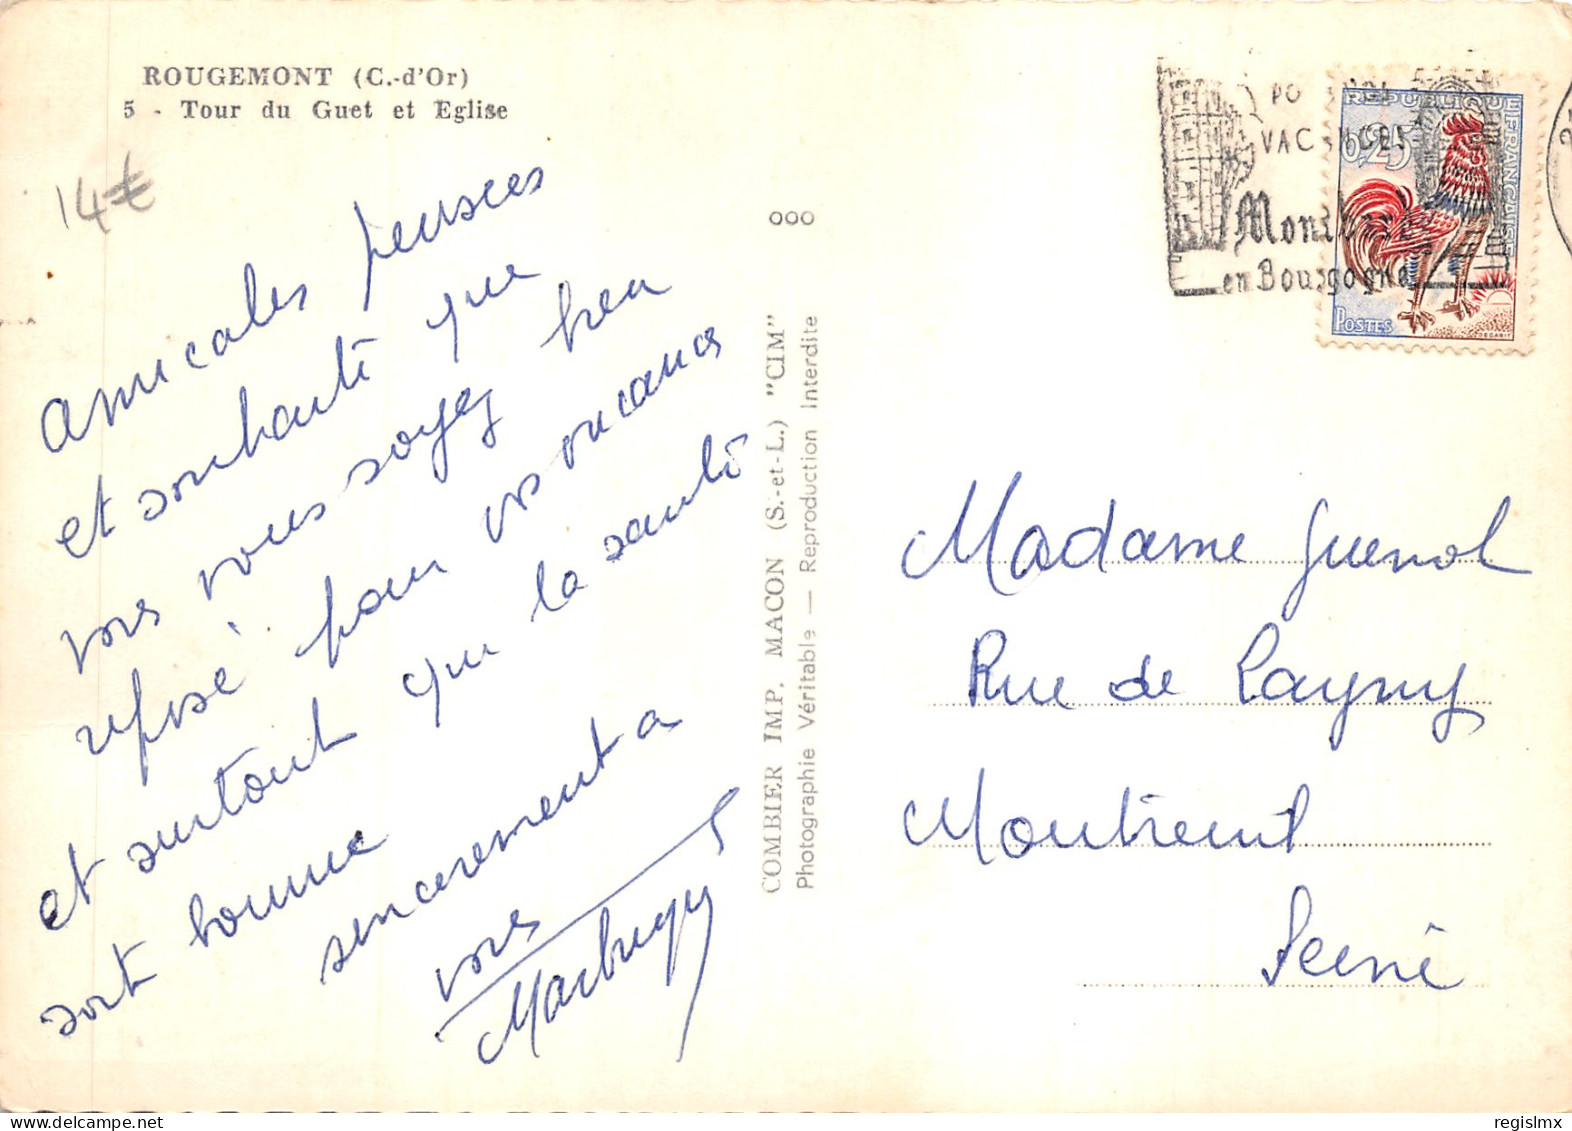 ROUGEMONT (C.-d'Or)
5 - Tour du Guet et Eglise
14€
Amicales pensees
et souhaite que
vous soyez bien
reposé pour vos vacances
et surtout que la santé
soit bonne
sincerement a
vous
000
COMBIER IMP. MACON (S.-et-L.) "CIM"
Photographie Véritable — Reproduction Interdite
VACANCES
Montbard
en Bourgogne
REPUBLIQUE FRANÇAISE
0,25
POSTES
DECARIS
Madame Guenol
Rue de Lagny
Montreuil
Seine
regislmx